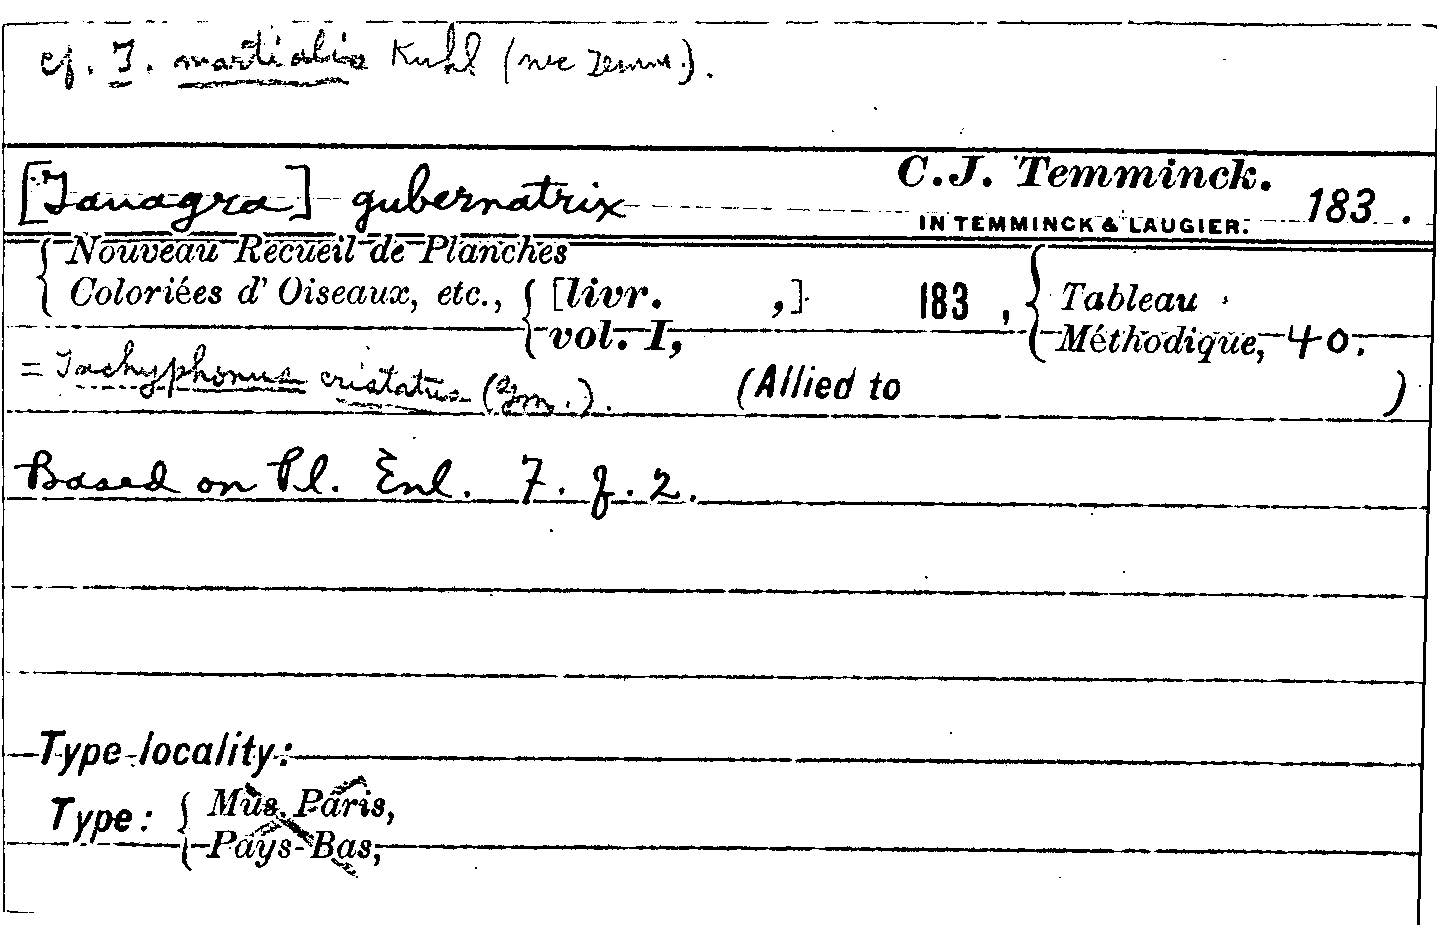 cf. T. martialis Kuhl (nec Temm.).
[Tanagra] gubernatrix C.J. Temminck. 183.
IN TEMMINCK & LAUGIER.
Nouveau Recueil de Planches
Coloriées d' Oiseaux, etc., [livr. ,] 183, Tableau
vol. I, Méthodique, 40.
= Tachyphonus cristatus (Gm.). (Allied to )
Based on Pl. Enl. 7. f. 2.
Type locality:
Type: Mus. Paris,
Pays-Bas,